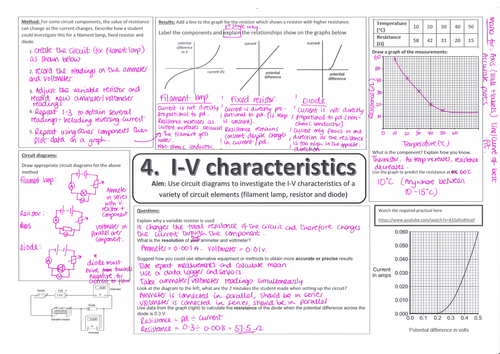 Method: For some circuit components, the value of resistance
can change as the current changes. Describe how a student
could investigate this for a filament lamp, fixed resistor and
diode.
1. create the circuit (for filament lamp)
as shown below
2. record the readings on the ammeter
and voltmeter
3. Adjust the variable resistor and
record new ammeter/voltmeter
readings
4. Repeat 1-3 to obtain several
readings - including reversing current
5. Repeat using other components then
plot data on a graph.
Circuit diagrams:
Draw appropriate circuit diagrams for the above
method
filament lamp:
Ammeter
in series
with v.
resistor +
component
Resistor:
voltmeter in
parallel over
component.
Diode:
diode must
point from
negative to
Results: Add a line to the graph for the resistor which shows a resistor with higher resistance.
Label the components and explain the relationships show on the graphs below
potential
difference
(V)
current (A)
current
potential
difference
current
potential
difference
Filament lamp
Current is not directly
proportional to pd.
Resistance increases as
current increases because
the filament gets
hotter.
Non-ohmic conductor
Fixed resistor
Current is directly pro-
portional to pd (if temp
is constant).
Resistance remains
constant despite changes
in current/pd.
Diode
Current is not directly
proportional to pd (non-
ohmic conductor)
Current only flows in one
direction as the resistance
is too high in the opposite
direction
4. I-V characteristics
Aim: Use circuit diagrams to investigate the I-V characteristics of a
variety of circuit elements (filament lamp, resistor and diode)
Questions:
Explain why a variable resistor is used
It changes the total resistance of the circuit and therefore changes
the current through the component
What is the resolution of your ammeter and voltmeter?
Ammeter = 0.001A. Voltmeter = 0.01V.
Suggest how you could use alternative equipment or methods to obtain more accurate or precise results
Take repeat measurements and calculate mean
Use a data logger and sensors
Take ammeter/voltmeter readings simultaneously
Look at the diagram to the left, what are the 2 mistakes the student made when setting up the circuit?
Ammeter is connected in parallel, should be in series
Voltmeter is connected in series, should be in parallel
Use data from the graph (right) to calculate the resistance of the diode when the potential difference across the
diode is 0.3 V
Resistance = pd ÷ current
Resistance = 0.3 ÷ 0.008 = 37.5 Ω
Temperature
(°C)
10
20
30
40
50
Resistance
(Ω)
58
42
31
20
15
Draw a graph of the measurements:
Resistance (Ω)
Temperature (°C)
Accurate plots
Line/curve of best
fit
What is the component? Explain how you know.
Thermistor. As temp increases, resistance
decreases
Use the graph to predict the resistance at
10°C (Anywhere between
10-15°C)
Watch the required practical here
Current
in amps
0.060
0.050
0.040
0.030
0.020
0.010
0.000
0.0
0.1
0.2
0.3
0.4
0.5
Potential difference in volts